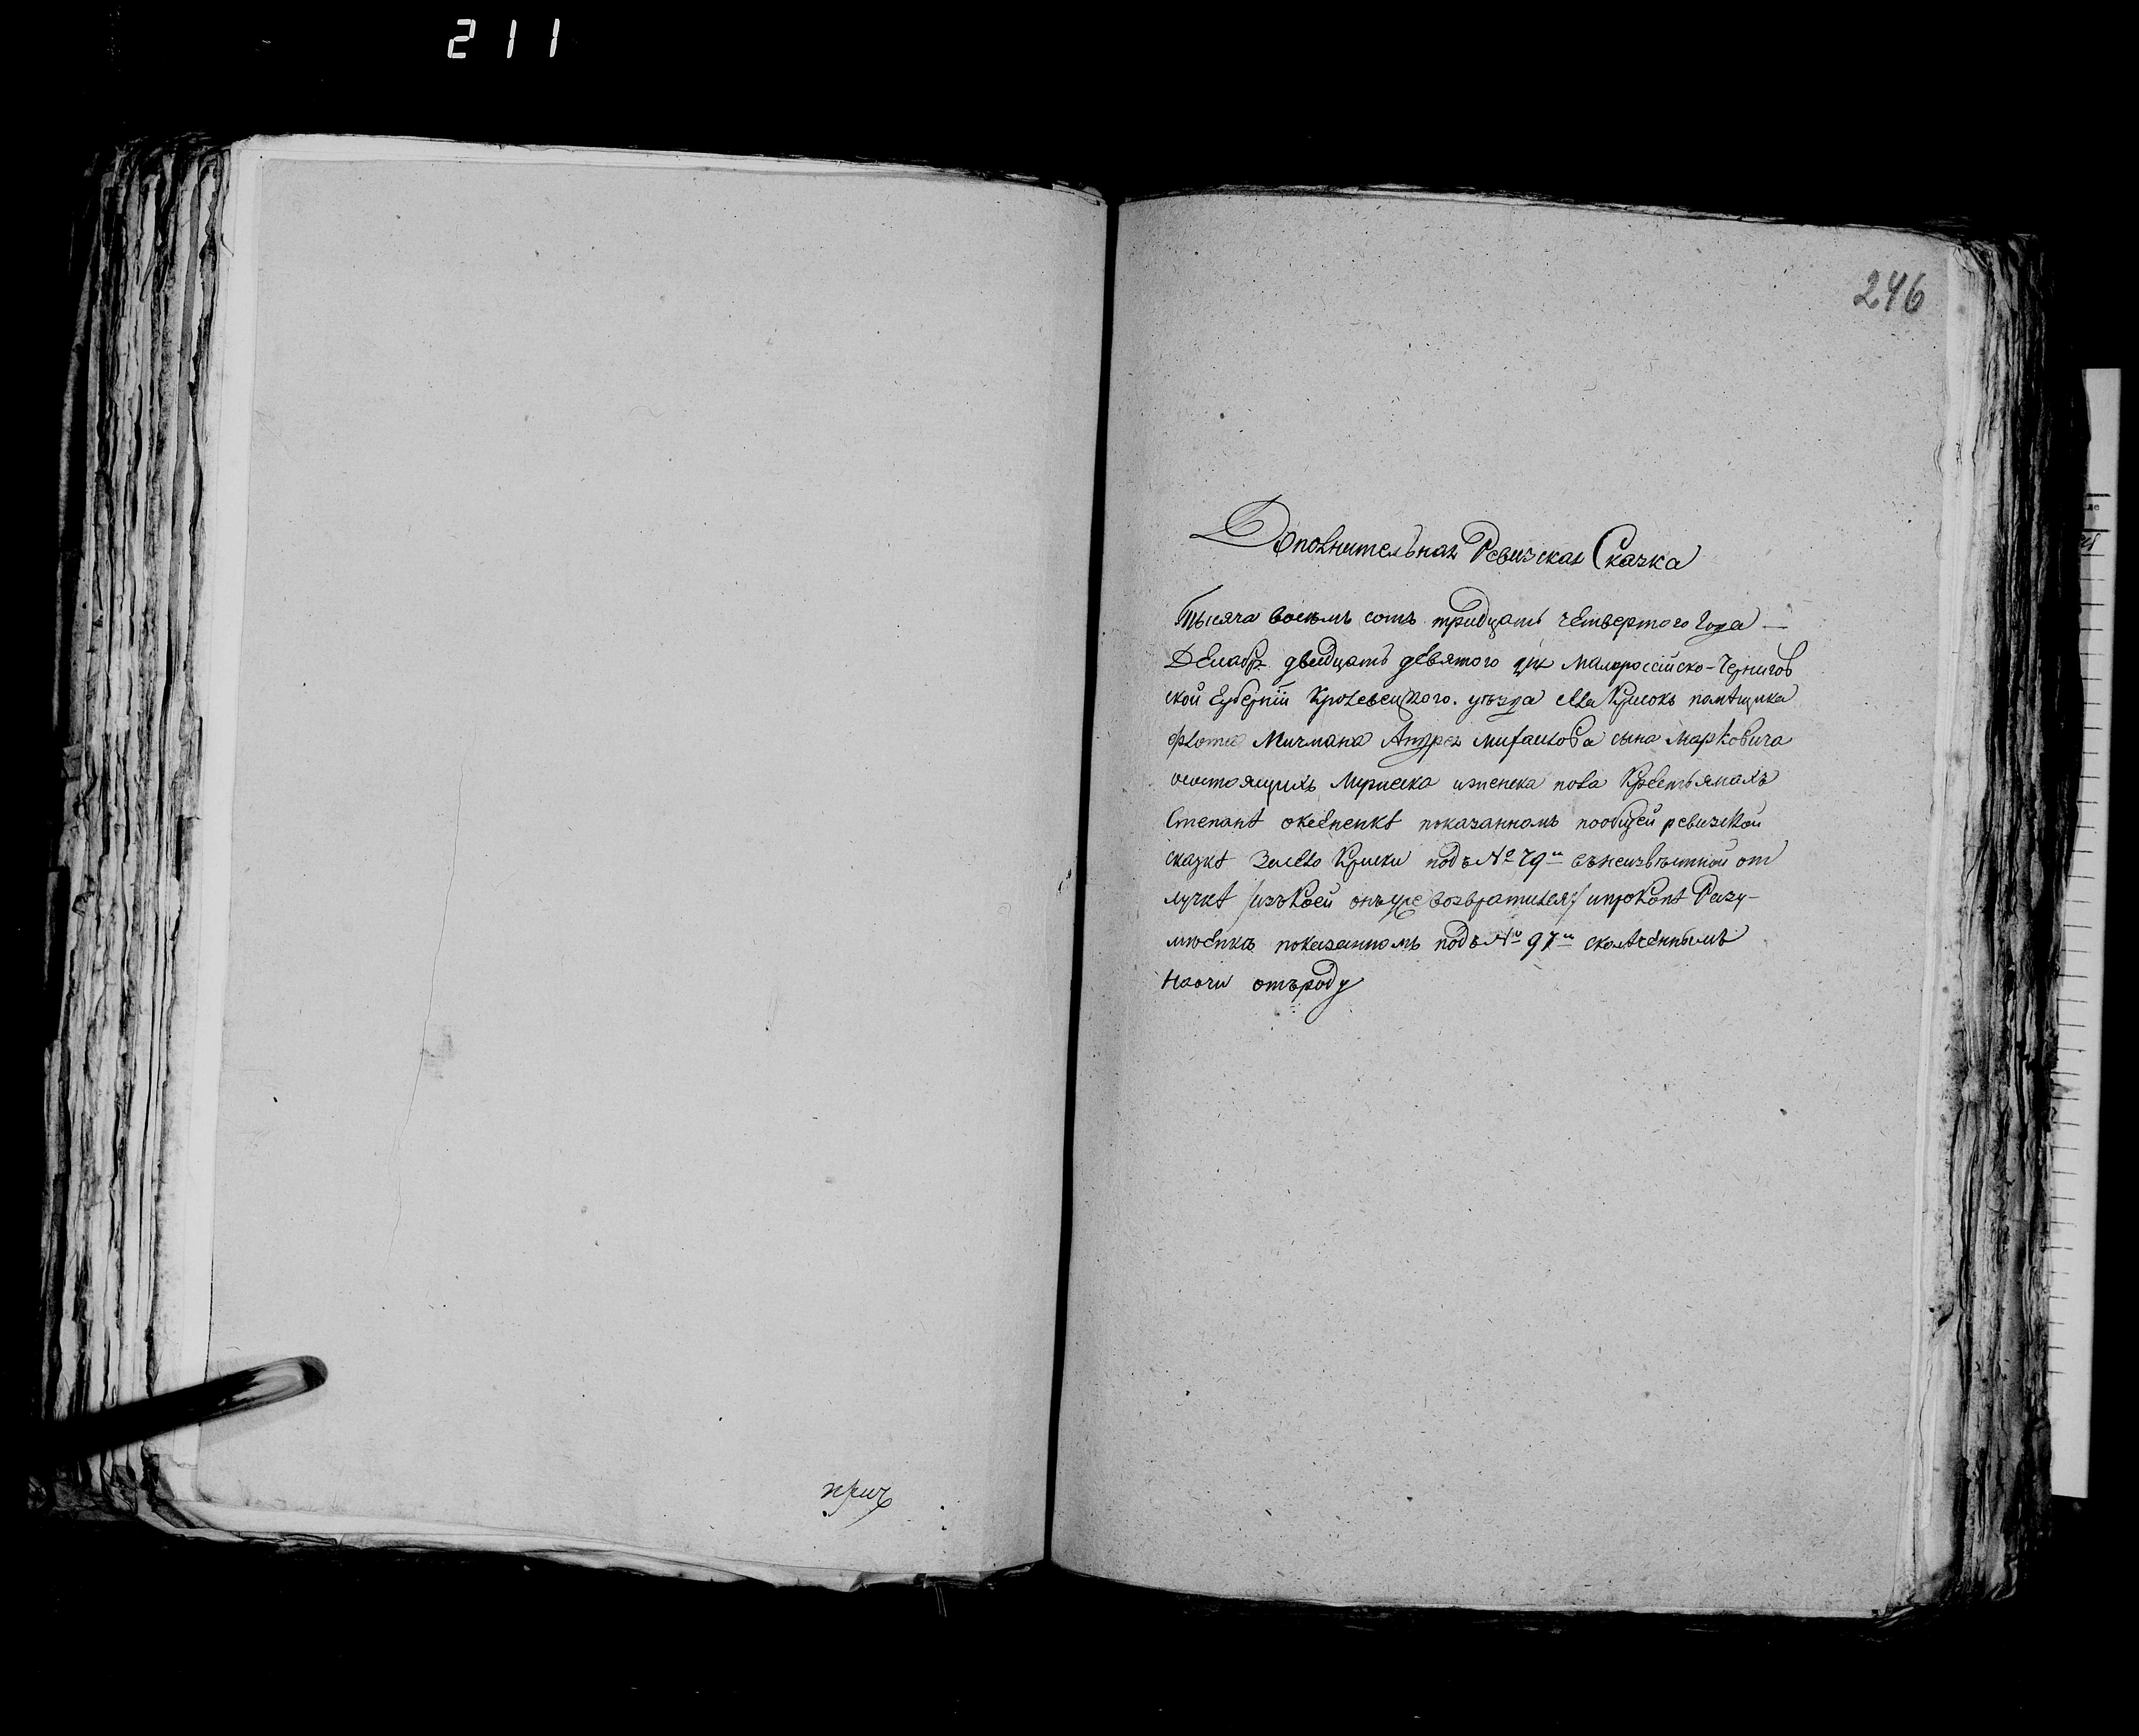 211
246
Дополнительная Ревизская Сказка
Тысяча восемь сотъ тридцать четвертого Года —
Декабря двадцать девятого дня Малороссійско-Чернигов
ской Губерніи Кролевецкого уѣзда села Крисокъ помѣщика
флота Мичмана Андрея Михаилова сына Марковича
состоящихъ мужеска иженска пола Крестьянахъ
Степанѣ показанномъ пообщей ревизкой
сказкѣ Криски подъ № 79м въ неизвѣстной от
лучкѣ /изъкоей онъуже возвратился/ ипрокопѣ Разу-
показанномъ подъ № 97м
отъроду
прич